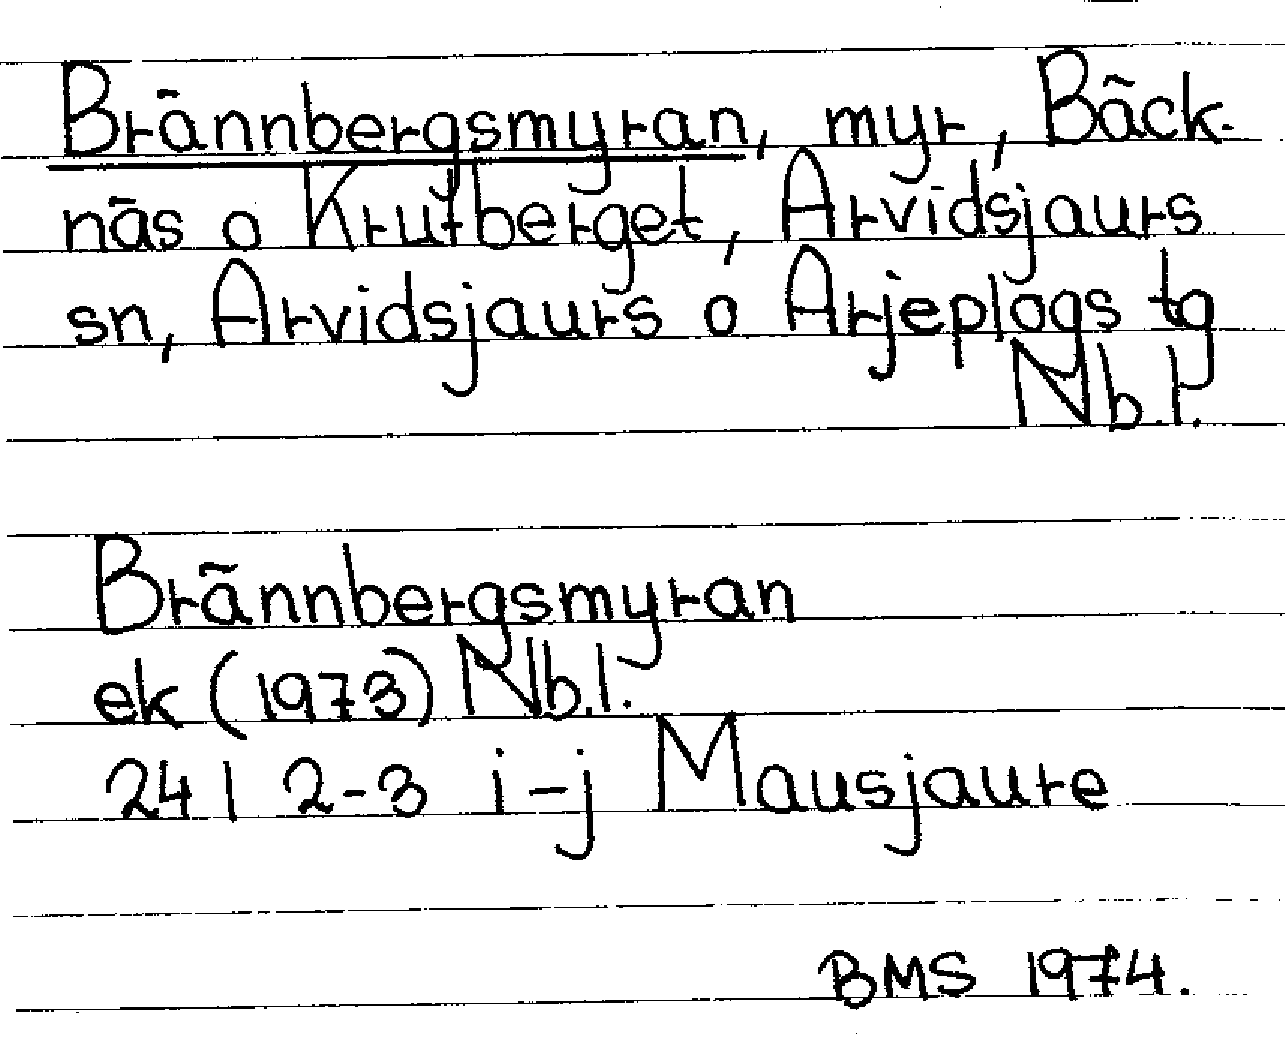 Brännbergsmyran, myr, Bäck-
näs o Krutberget, Arvidsjaurs
sn, Arvidsjaurs o Arjeplogs tg
Nb.l.
Brännbergsmyran
ek (1973) Nb.l.
24 I 2-3 i-j Mausjaure
BMS 1974.